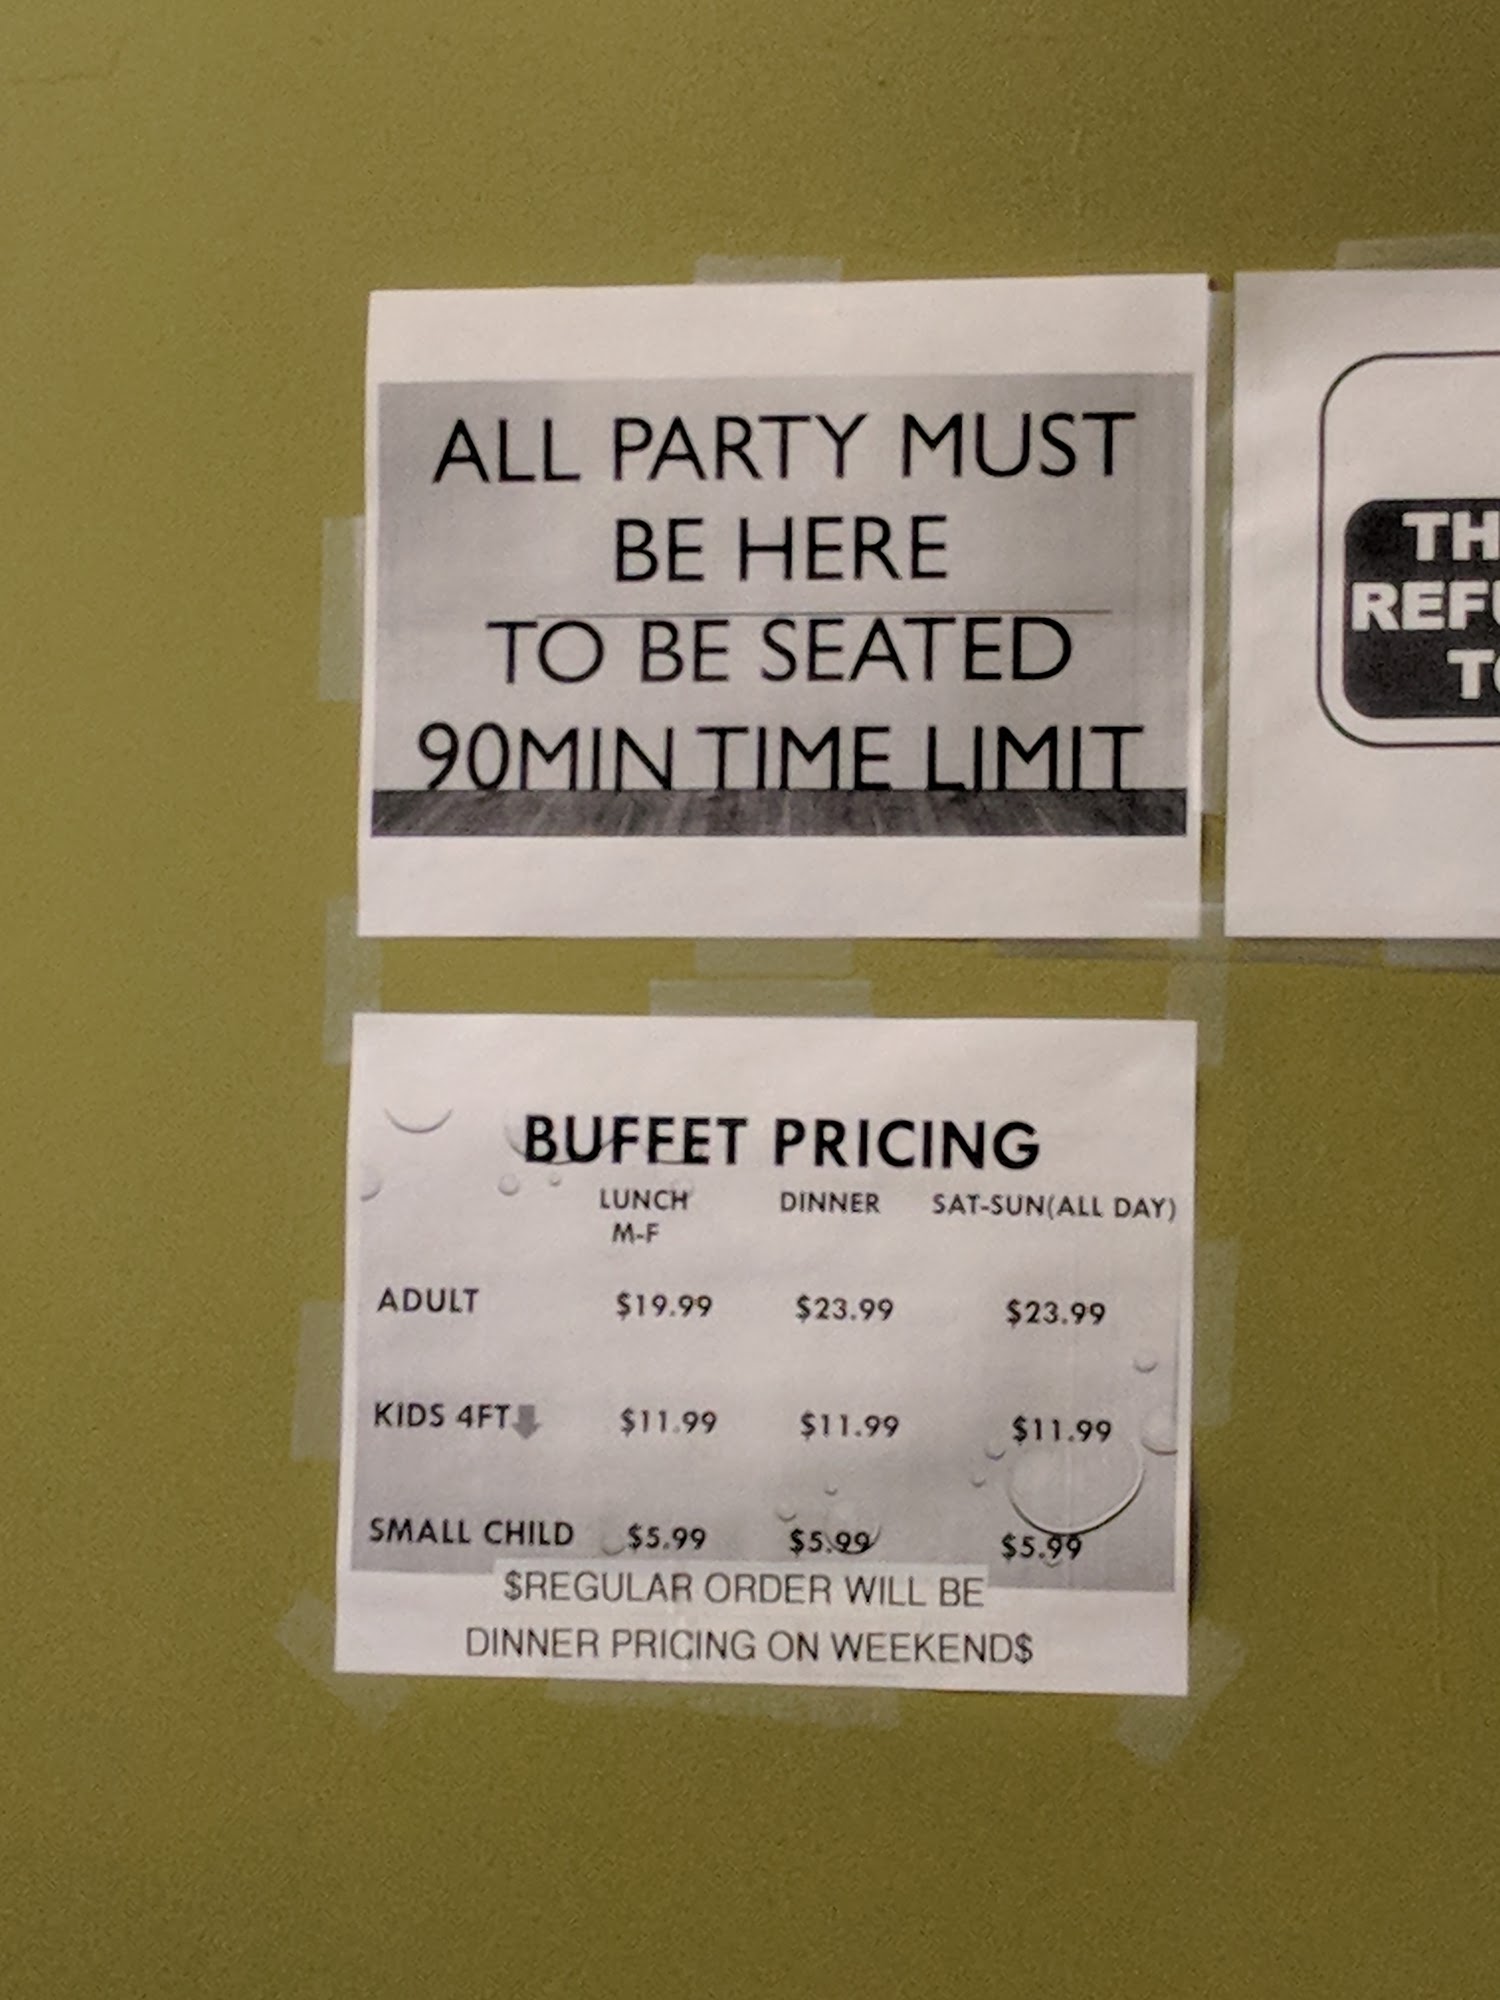 ALL PARTY MUST
BE HERE
TO BE SEATED
90MIN TIME LIMIT
BUFFET PRICING
LUNCH DINNER SAT-SUN(ALL DAY)
M-F
ADULT $19.99 $23.99 $23.99
KIDS 4FT $11.99 $11.99 $11.99
SMALL CHILD $5.99 $5.99 $5.99
$REGULAR ORDER WILL BE
DINNER PRICING ON WEEKEND$